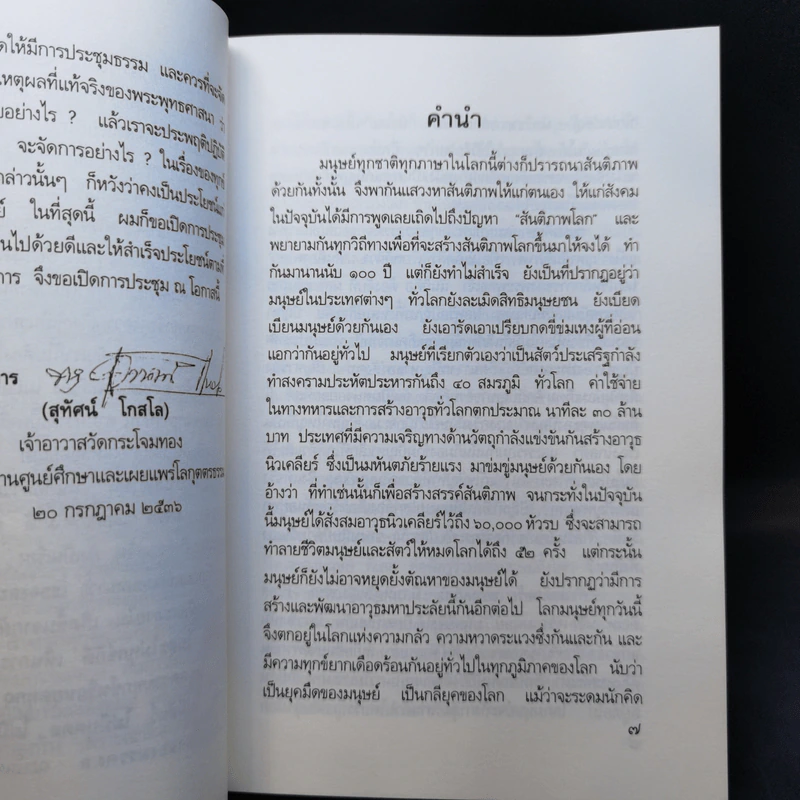 ให้มีการประชุมธรรม และควรที่จะจัด
เหตุผลที่แท้จริงของพระพุทธศาสนา ว่า
อย่างไร ? แล้วเราจะประพฤติปฏิบัติ
จะจัดการอย่างไร ? ในเรื่องของทุกข์
กล่าวนั้นๆ ก็หวังว่าคงเป็นประโยชน์แก่
ในที่สุดนี้ ผมก็ขอเปิดการประชุม
ไปด้วยดีและให้สำเร็จประโยชน์ตามที่
การ จึงขอเปิดการประชุม ณ โอกาสนี้
(สุทัศน์ โกสโล)
เจ้าอาวาสวัดกระโจมทอง
ศูนย์ศึกษาและเผยแพร่โลกุตตรธรรม
๒๐ กรกฎาคม ๒๕๓๖
คำนำ
มนุษย์ทุกชาติทุกภาษาในโลกนี้ต่างก็ปรารถนาสันติภาพ
ด้วยกันทั้งนั้น จึงพากันแสวงหาสันติภาพให้แก่ตนเอง ให้แก่สังคม
ในปัจจุบันได้มีการพูดเลยเถิดไปถึงปัญหา "สันติภาพโลก" และ
พยายามกันทุกวิถีทางเพื่อที่จะสร้างสันติภาพโลกขึ้นมาให้จงได้ ทำ
กันมานานนับ ๑๐๐ ปี แต่ก็ยังทำไม่สำเร็จ ยังเป็นที่ปรากฏอยู่ว่า
มนุษย์ในประเทศต่างๆ ทั่วโลกยังละเมิดสิทธิมนุษยชน ยังเบียด
เบียนมนุษย์ด้วยกันเอง ยังเอารัดเอาเปรียบกดขี่ข่มเหงผู้ที่อ่อน
แอกว่ากันอยู่ทั่วไป มนุษย์ที่เรียกตัวเองว่าเป็นสัตว์ประเสริฐกำลัง
ทำสงครามประหัตประหารกันถึง ๔๐ สมรภูมิ ทั่วโลก ค่าใช้จ่าย
ในทางทหารและการสร้างอาวุธทั่วโลกตกประมาณ นาทีละ ๓๐ ล้าน
บาท ประเทศที่มีความเจริญทางด้านวัตถุกำลังแข่งขันกันสร้างอาวุธ
นิวเคลียร์ ซึ่งเป็นมหันตภัยร้ายแรง มาข่มขู่มนุษย์ด้วยกันเอง โดย
อ้างว่า ที่ทำเช่นนั้นก็เพื่อสร้างสรรค์สันติภาพ จนกระทั่งในปัจจุบัน
นี้มนุษย์ได้สั่งสมอาวุธนิวเคลียร์ไว้ถึง ๖๐,๐๐๐ หัวรบ ซึ่งจะสามารถ
ทำลายชีวิตมนุษย์และสัตว์ให้หมดโลกได้ถึง ๕๒ ครั้ง แต่กระนั้น
มนุษย์ก็ยังไม่อาจหยุดยั้งตัณหาของมนุษย์ได้ ยังปรากฏว่ามีการ
สร้างและพัฒนาอาวุธมหาประลัยนี้กันอีกต่อไป โลกมนุษย์ทุกวันนี้
จึงตกอยู่ในโลกแห่งความกลัว ความหวาดระแวงซึ่งกันและกัน และ
มีความทุกข์ยากเดือดร้อนกันอยู่ทั่วไปในทุกภูมิภาคของโลก นับว่า
เป็นยุคมืดของมนุษย์ เป็นกลียุคของโลก แม้ว่าจะระดมนักคิด
๗